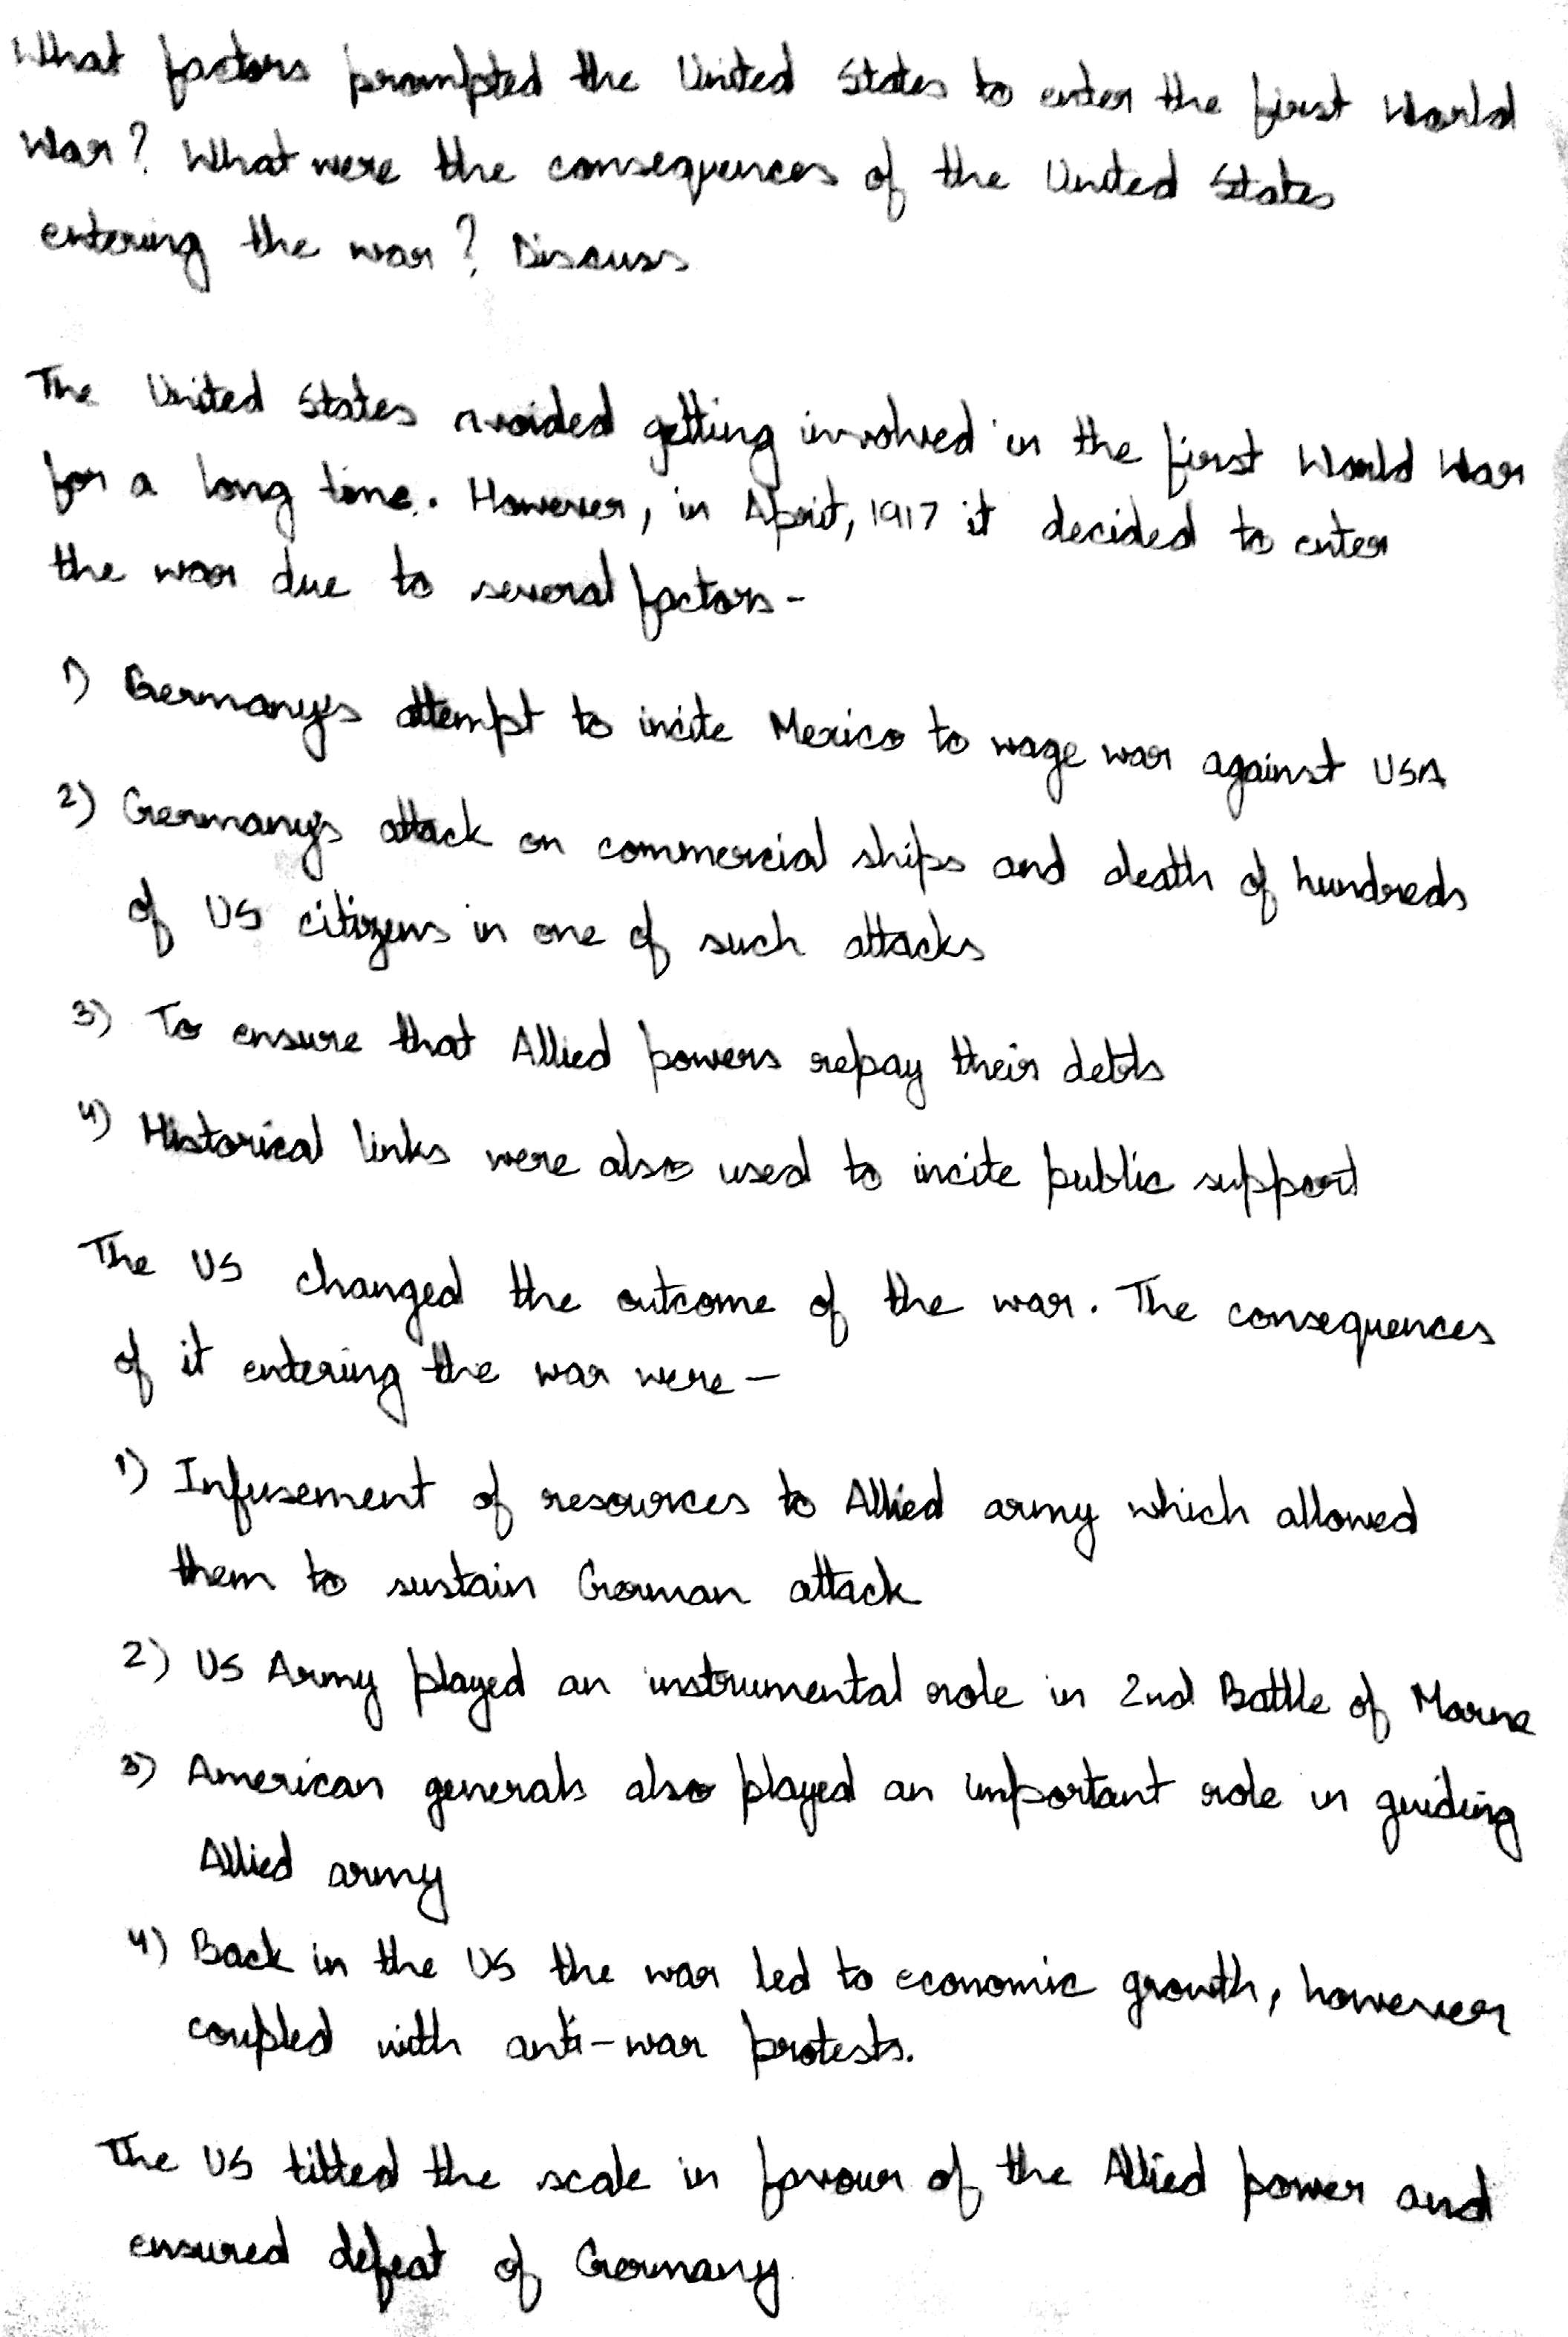 What factors prompted the United States to enter the first World
War? What were the consequences of the United States
entering the war? Discuss
The United States avoided getting involved in the first World War
for a long time. However, in April, 1917 it decided to enter
the war due to several factors-
1) Germany's attempt to incite Mexico to wage war against USA
2) Germany's attack on commercial ships and death of hundreds
of US citizens in one of such attacks
3) To ensure that Allied powers repay their debts
4) Historical links were also used to incite public support
The US changed the outcome of the war. The consequences
of it entering the war were-
1) Infusement of resources to Allied army which allowed
them to sustain German attack
2) US Army played an instrumental role in 2nd Battle of Marne
3) American generals also played an important role in guiding
Allied army
4) Back in the US the war led to economic growth, however
coupled with anti-war protests.
The US tilted the scale in favour of the Allied power and
ensured defeat of Germany